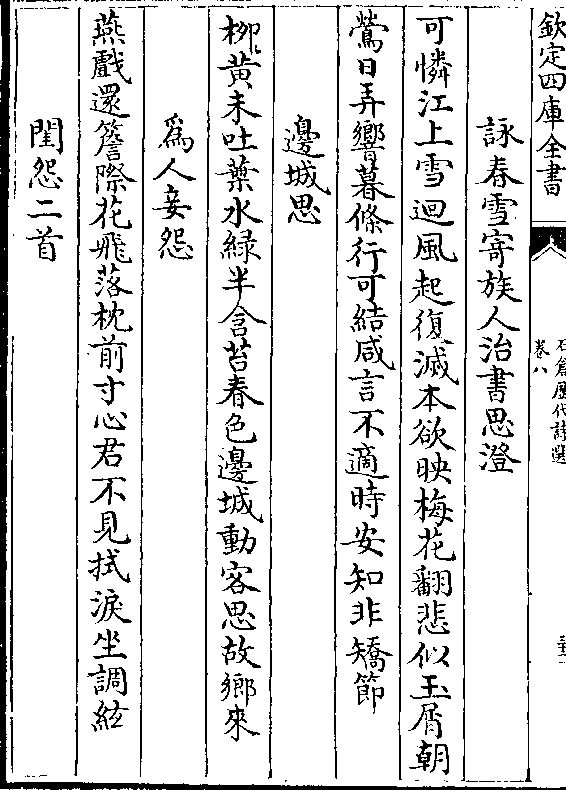 欽定四庫全書
石倉歷代詩選
卷八
詠春雪寄族人治書思澄
可憐江上雪迴風起復滅本欲映梅花翻悲似玉屑朝
鶯日弄響暮條行可結咸言不適時安知非矯節
邊城思
柳黃未吐葉水緑半含苔春色邊城動客思故鄉來
為人妾怨
燕戲還簷際花飛落枕前寸心君不見拭淚坐調絃
閨怨二首